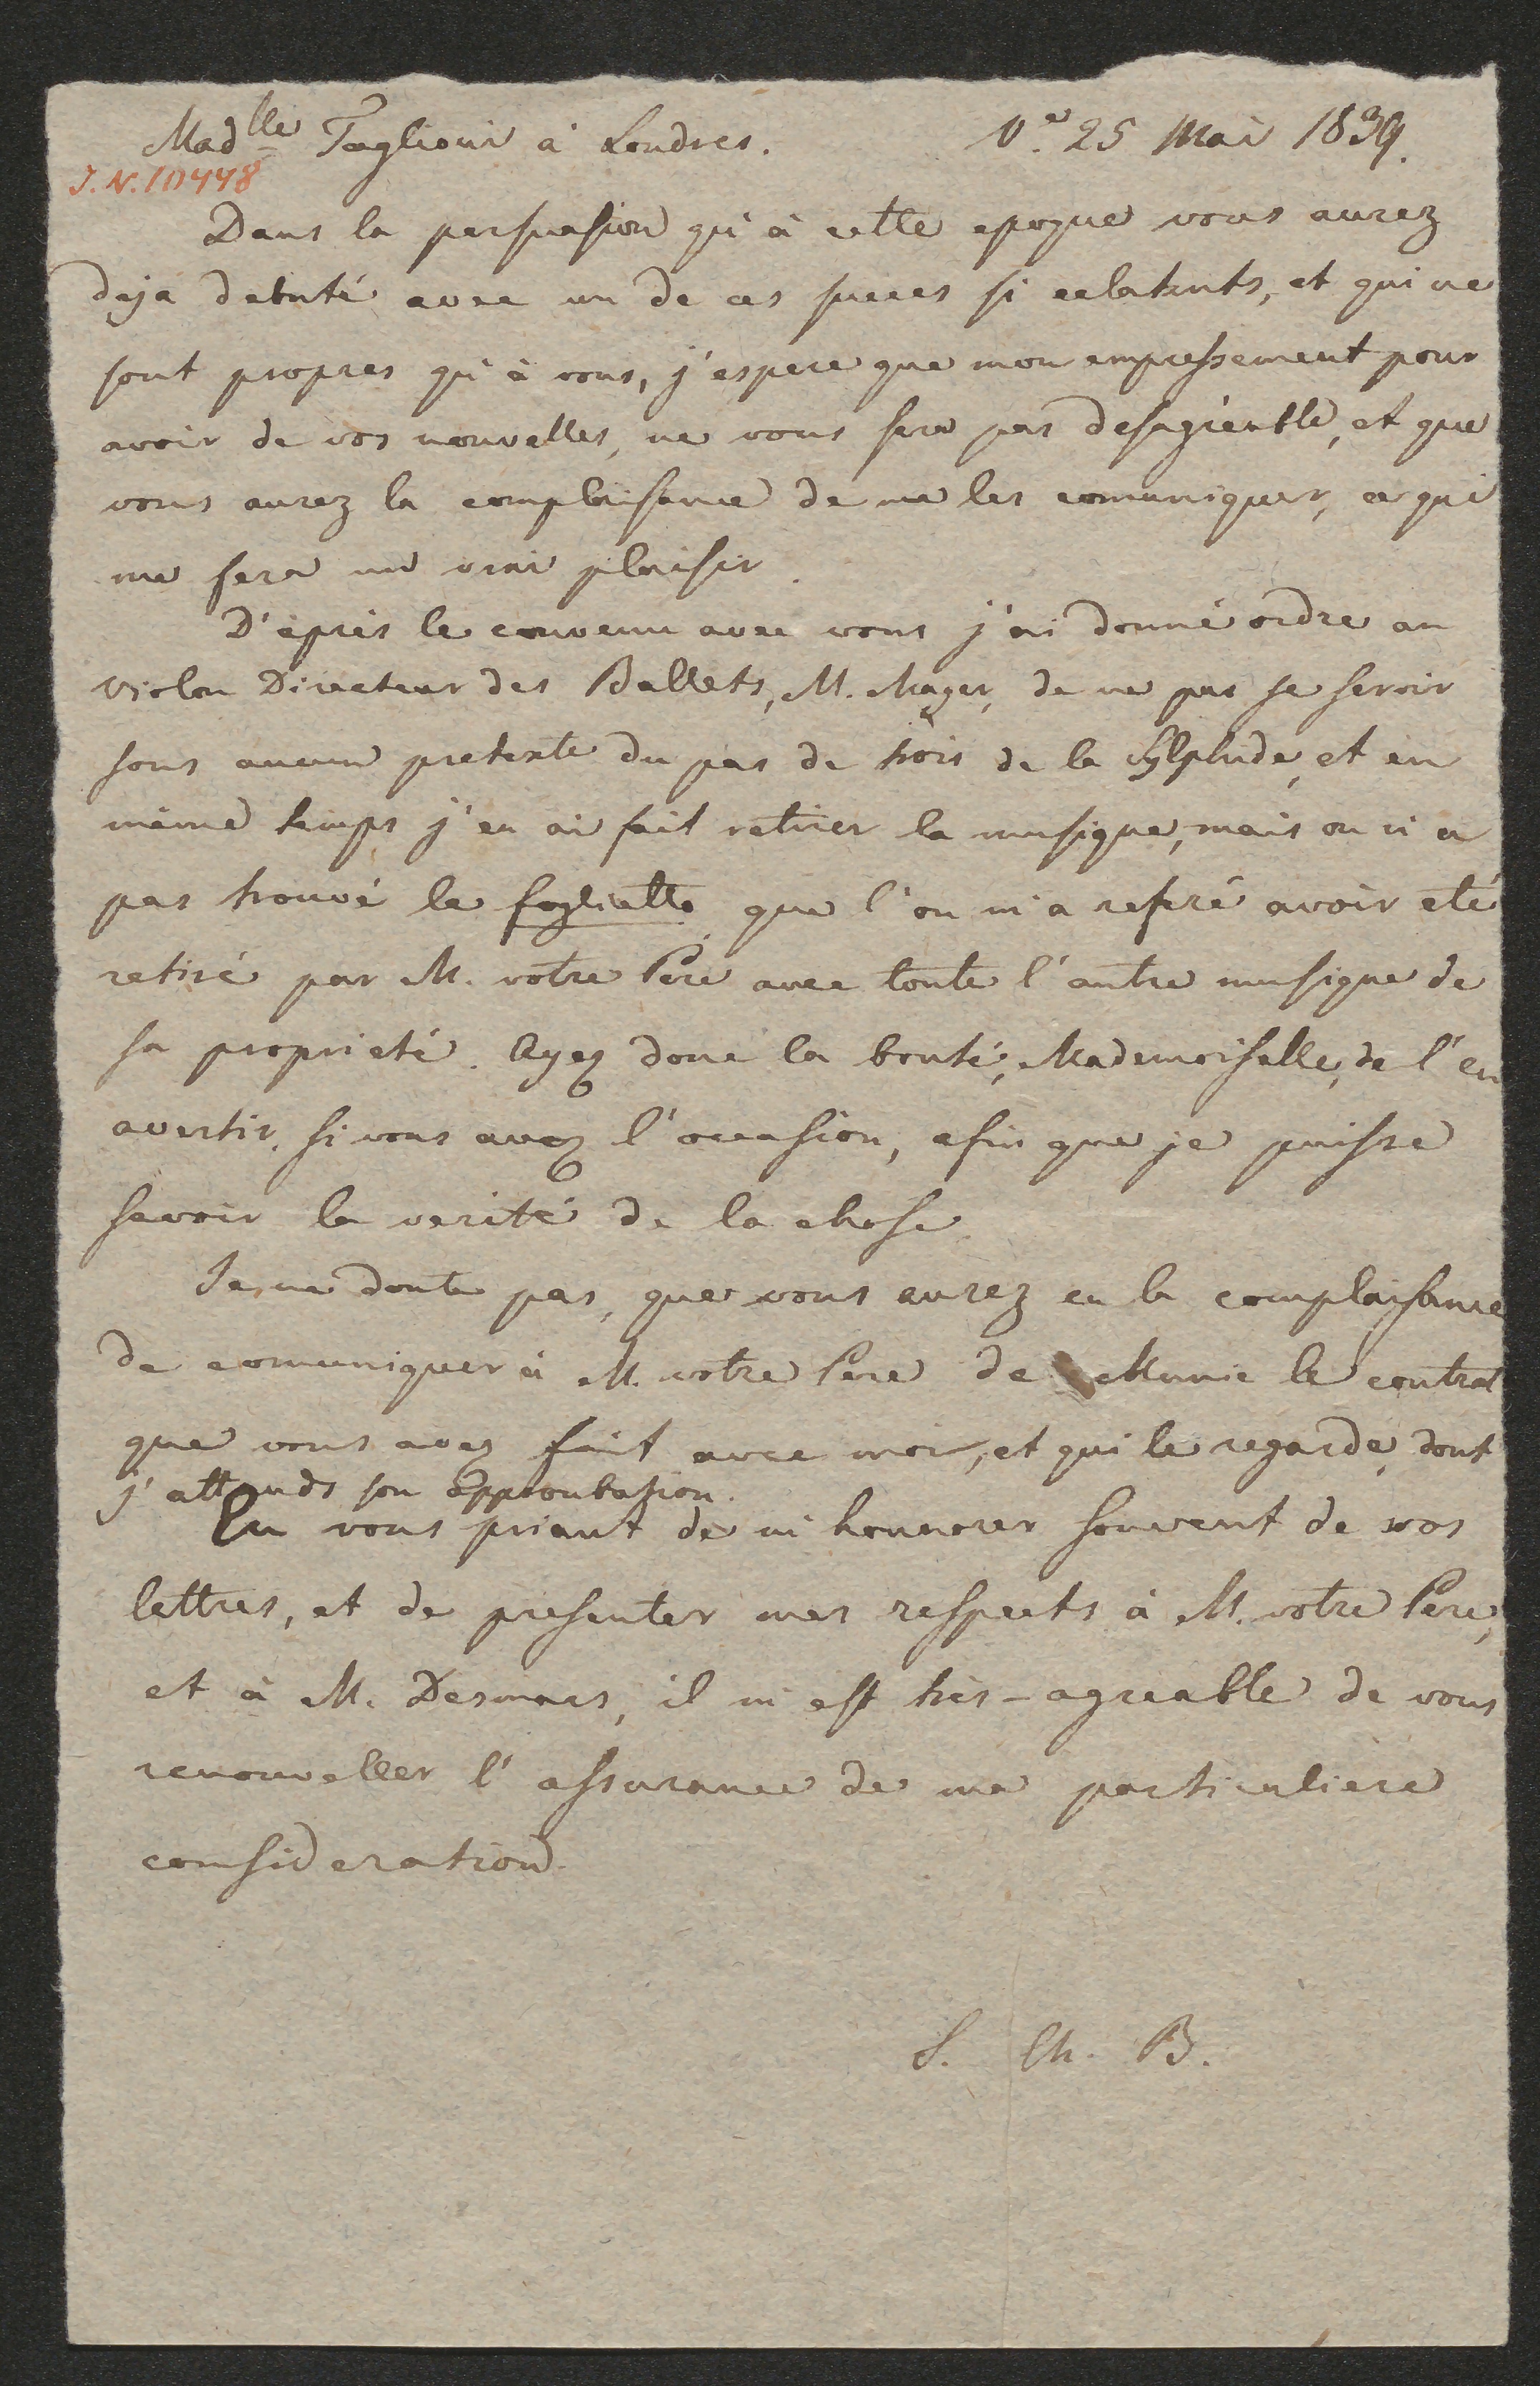 Mad<sup>lle</sup> Taglioni à Londres. V.<sup>e</sup> 25 Mai 1839.
J.N.10448
Dans la persuasion qu'à cette epoque vous aurez
deja debuté avec un de ces succes si eclatants, et qui ne
sont propres qu'à vous, j'espere que mon empressement pour
avoir de vos nouvelles, ne vous sera pas desagréable, et que
vous aurez la complaisance de me les comuniquer, ce qui
me sera un vrai plaisir.
D'après le convenu avec vous j'ai donné ordre au
Violon Directeur des Ballets, M. Mayer, de ne pas se servir
sous aucun pretexte du pas de trois de la Sylphide, et en
même temps j'en ai fait retirer la musique, mais on n'a
pas trouvé le foglietto que l'on m'a referé avoir eté
retiré par M. votre Pere avec toute l'autre musique de
sa proprieté. Ayez donc la bonté, Mademoiselle, de l'en
avertir, si vous avez l'occasion, afin que je puisse
savoir la verité de la chose.
Je ne doute pas, que vous aurez eu la complaisance
de comuniquer à M. votre Pere de Munic le contrat
que vous avez fait avec moi, et qui le regarde, dont
j'attends son approubation.
En vous priant de m'honnorer souvent de vos
lettres, et de presenter mes respects à M. votre Pere,
et à M. Desmares, il m'est très-agreable de vous
renouveller l'assurance de ma particuliere
consideration.
S. Ch. B.